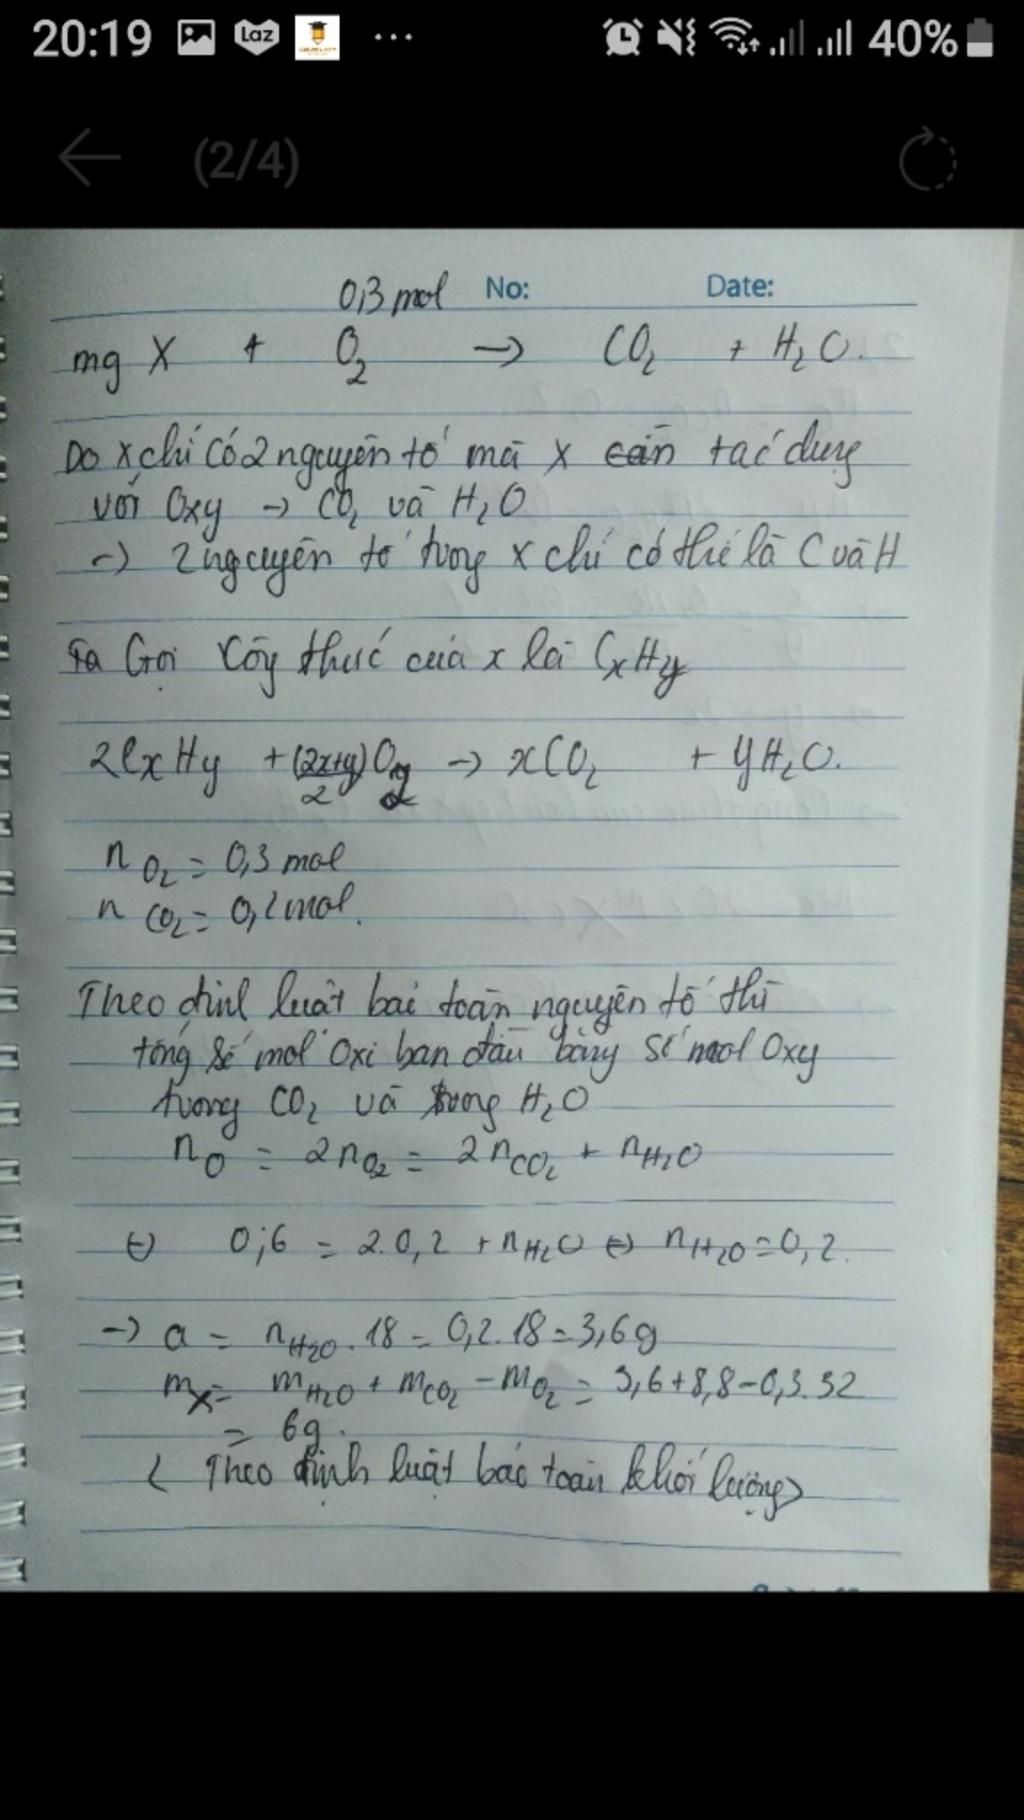 20:19 Laz ... 40%
(2/4)
0,3 mol No: Date:
mg X + O₂ → CO₂ + H₂O.
Do X chỉ có 2 nguyên tố mà X tác dụng
với Oxy → CO₂ và H₂O
→ 2 nguyên tố trong X chỉ có thể là C và H
Ta Gọi Công thức của x là CxHy
2CxHy + (2x+y)/2 O₂ → xCO₂ + yH₂O.
n O₂ = 0,3 mol
n CO₂ = 0,2 mol.
Theo định luật bảo toàn nguyên tố thì
tổng số mol Oxi ban đầu bằng số mol Oxy
trong CO₂ và trong H₂O
nO = 2nO₂ = 2nCO₂ + nH₂O
⇔ 0,6 = 2.0,2 + nH₂O ⇔ nH₂O = 0,2.
→ a = nH₂O . 18 = 0,2.18 = 3,6g
mX = mH₂O + mCO₂ - mO₂ = 3,6+8,8-0,3.32
= 6g.
( Theo định luật bảo toàn khối lượng)